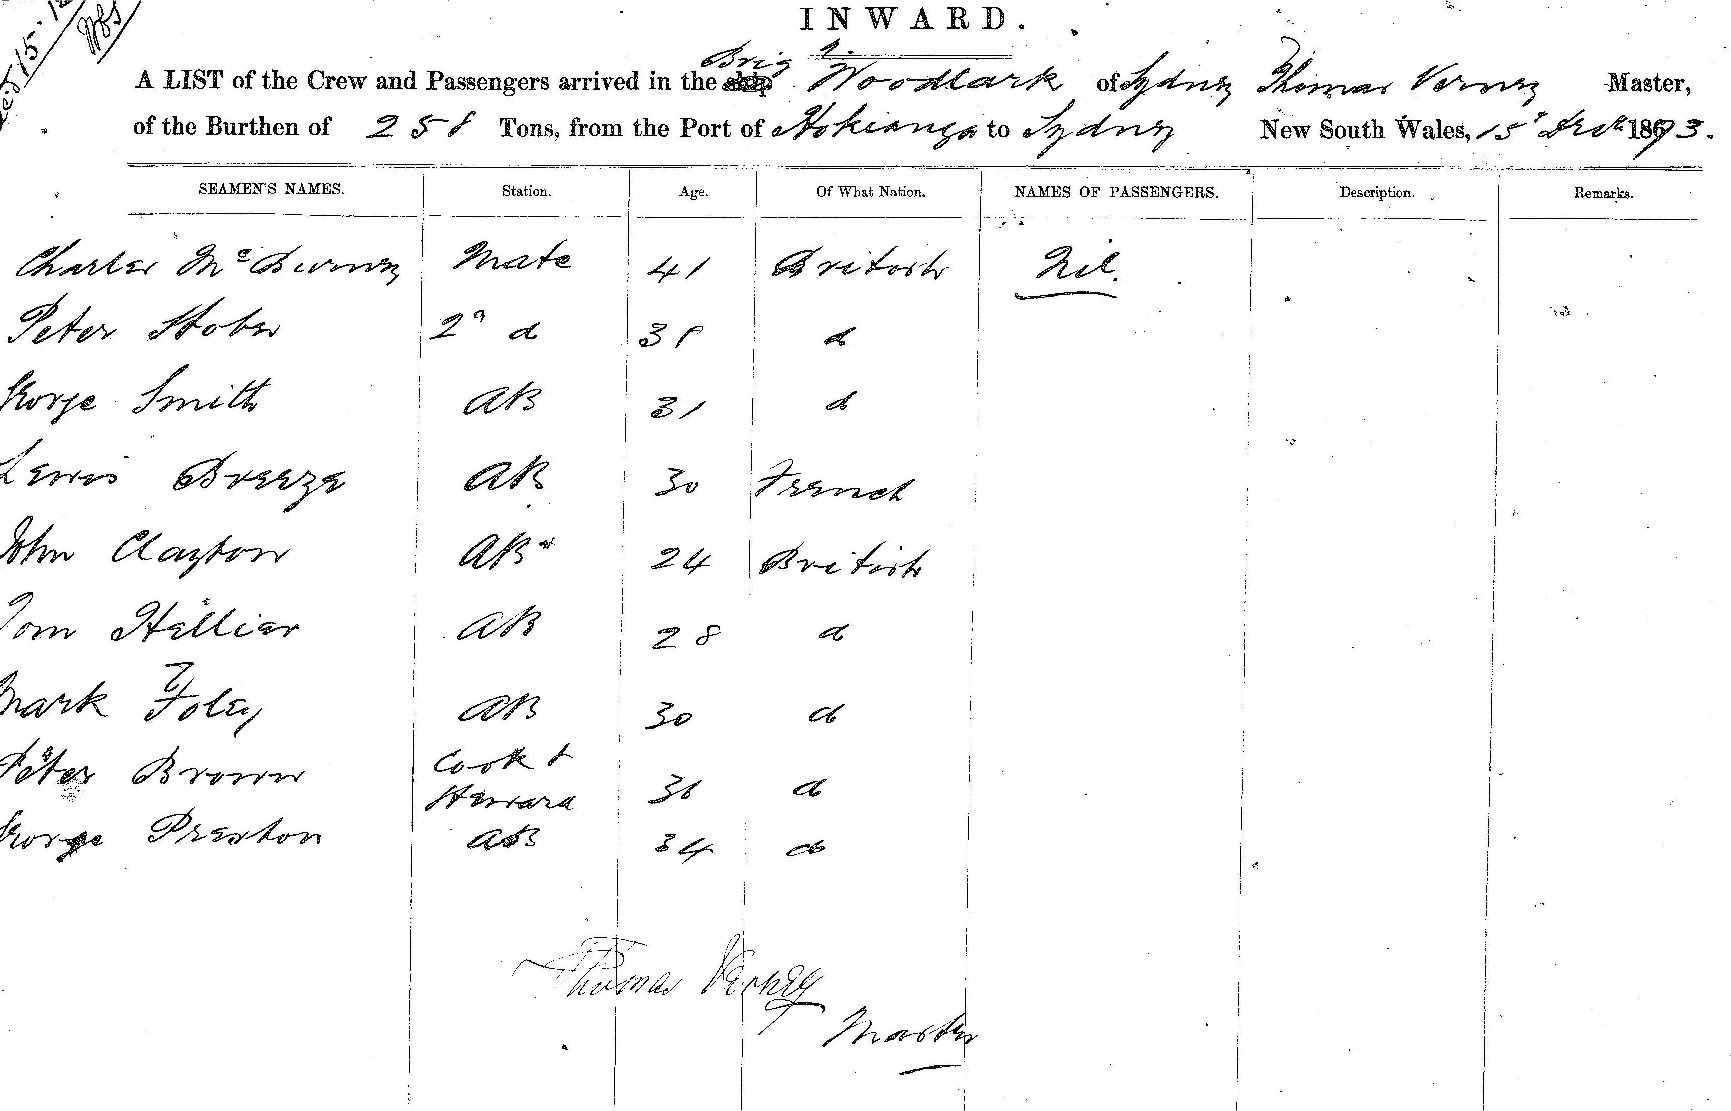 INWARD.
A LIST of the Crew and Passengers arrived in the Brig ship Woodlark of Sydney Thomas Verney Master,
of the Burthen of 258 Tons, from the Port of Hokianga to Sydney New South Wales, 15 Decr 1873.
SEAMEN'S NAMES. Station. Age. Of What Nation. NAMES OF PASSENGERS. Description. Remarks.
Charles Mc Burney Mate 41 British Nil.
Peter Stober 2nd d 38 d
George Smith AB 31 d
Lewis Breeze AB 30 French
John Clayton AB 24 British
Tom Hellier AB 28 d
Mark Foley AB 30 d
Peter Brown Cook & Steward 36 d
George Preston AB 34 d
Thomas Verney
Master